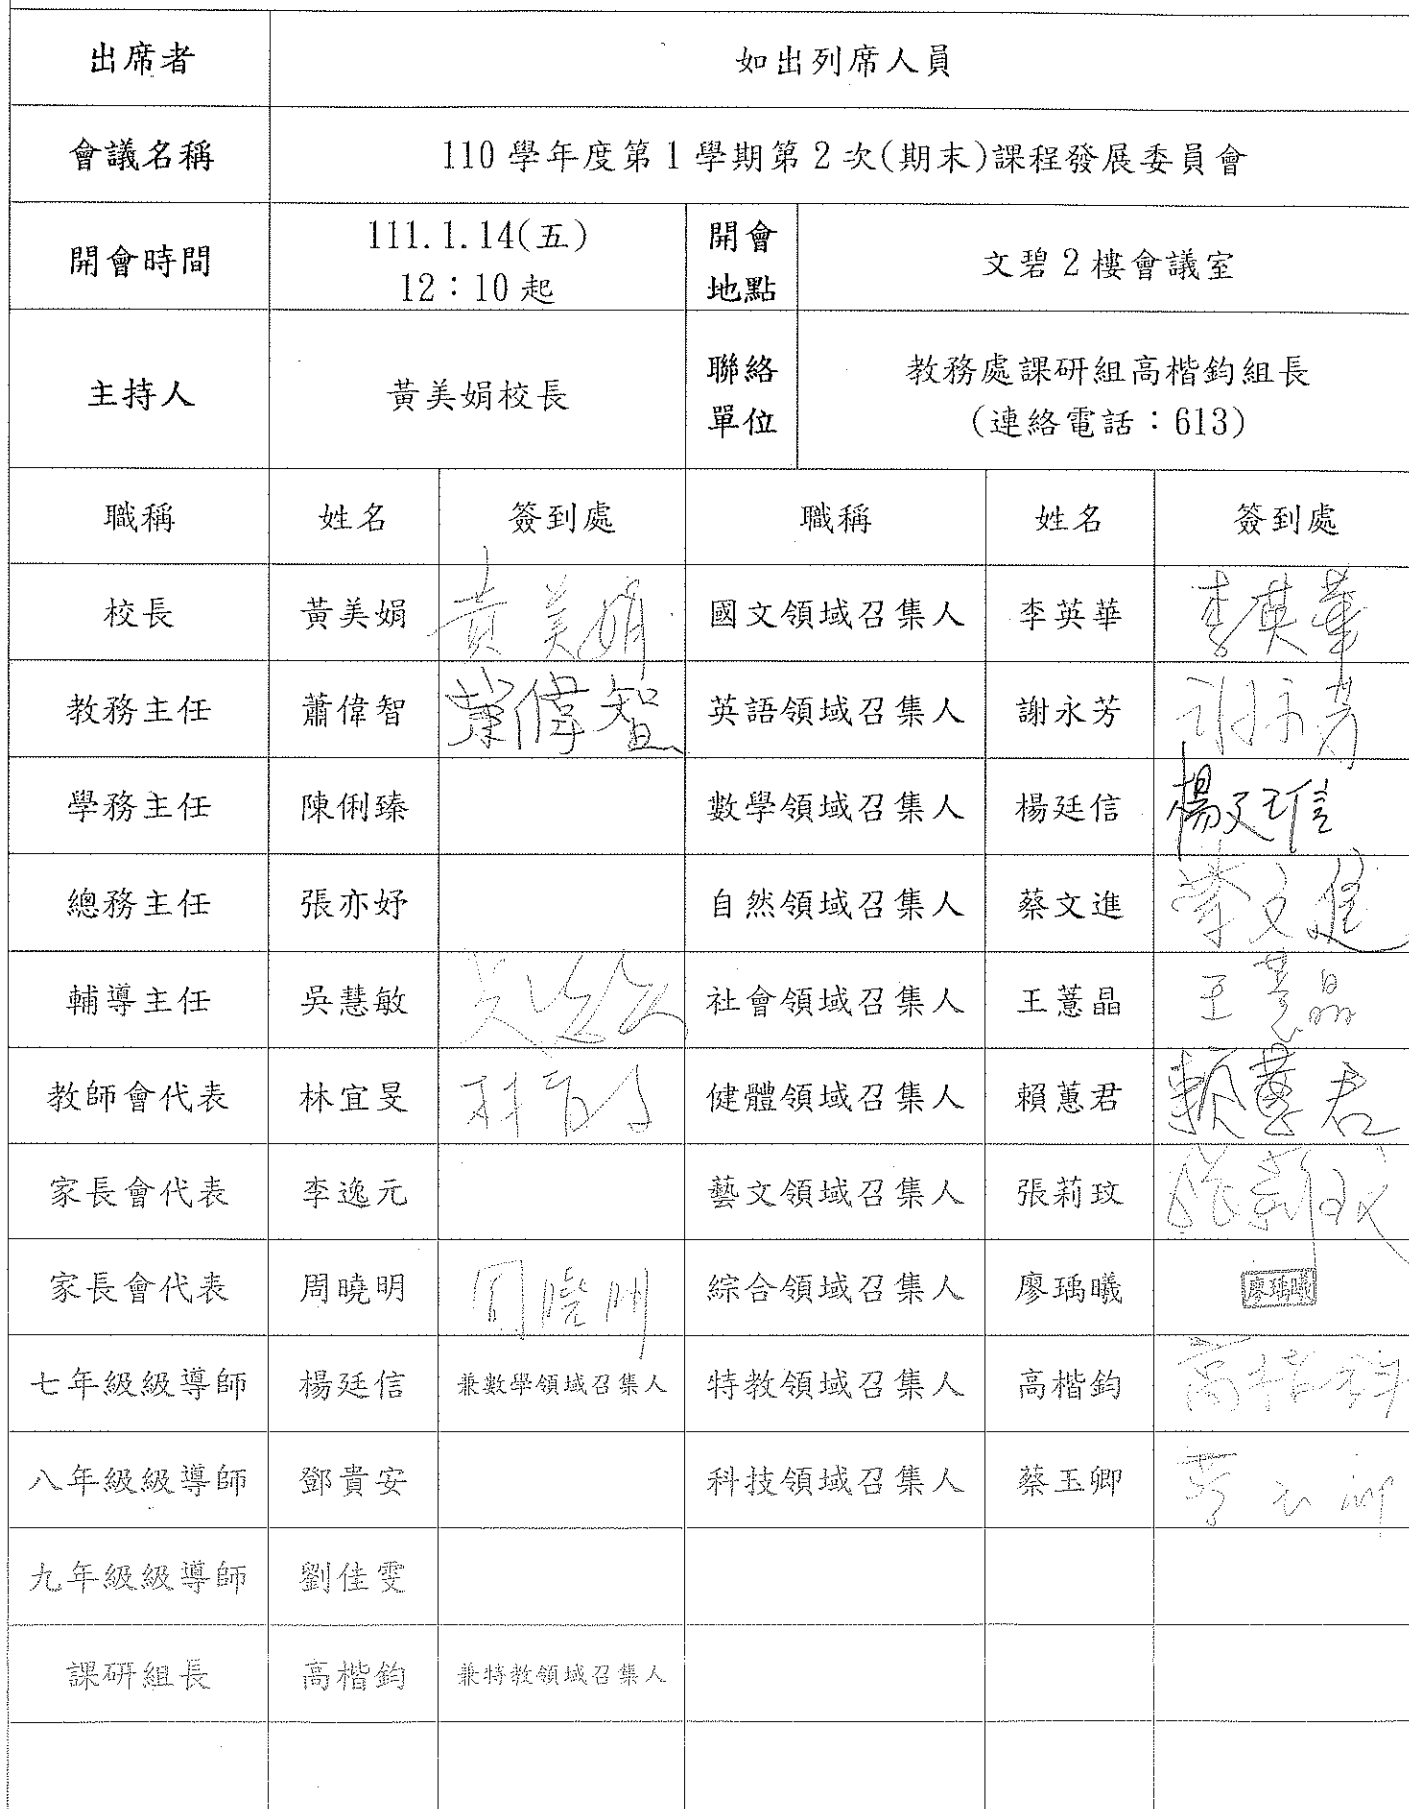 出席者 如出列席人員
會議名稱 110 學年度第 1 學期第 2 次(期末)課程發展委員會
開會時間 111.1.14(五) 12：10 起 開會地點 文碧 2 樓會議室
主持人 黃美娟校長 聯絡單位 教務處課研組高楷鈞組長 (連絡電話：613)
職稱 姓名 簽到處 職稱 姓名 簽到處
校長 黃美娟 黃美娟 國文領域召集人 李英華 李英華
教務主任 蕭偉智 蕭偉智 英語領域召集人 謝永芳 謝永芳
學務主任 陳俐臻 數學領域召集人 楊廷信 楊廷信
總務主任 張亦妤 自然領域召集人 蔡文進 蔡文進
輔導主任 吳慧敏 社會領域召集人 王薏晶 王薏晶
教師會代表 林宜旻 健體領域召集人 賴蕙君 賴蕙君
家長會代表 李逸元 藝文領域召集人 張莉玟 張莉玟
家長會代表 周曉明 周曉明 綜合領域召集人 廖瑀曦 廖瑀曦
七年級級導師 楊廷信 兼數學領域召集人 特教領域召集人 高楷鈞 高楷鈞
八年級級導師 鄧貴安 科技領域召集人 蔡玉卿 蔡玉卿
九年級級導師 劉佳雯
課研組長 高楷鈞 兼特教領域召集人